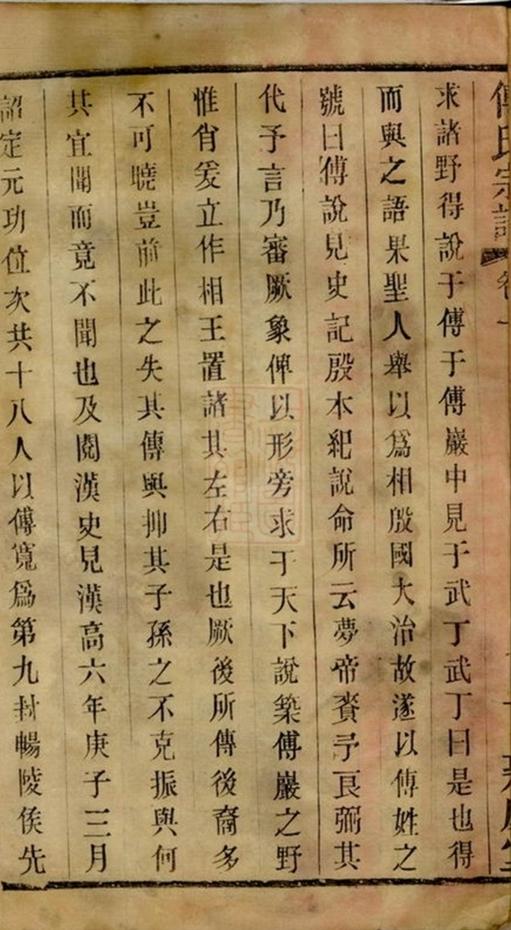 傅氏宗譜 卷一
求諸野得說于傅于傅巖中見于武丁武丁曰是也得
而與之語果聖人舉以爲相殷國大治故遂以傅姓之
號曰傅說見史記殷本紀說命所云夢帝賚予良弼其
代予言乃審厥象俾以形旁求于天下說築傅巖之野
惟肖爰立作相王置諸其左右是也厥後所傳後裔多
不可曉豈前此之失其傳與抑其子孫之不克振與何
其宜聞而竟不聞也及閱漢史見漢高六年庚子三月
詔定元功位次共十八人以傅寬爲第九封暢陵侯先